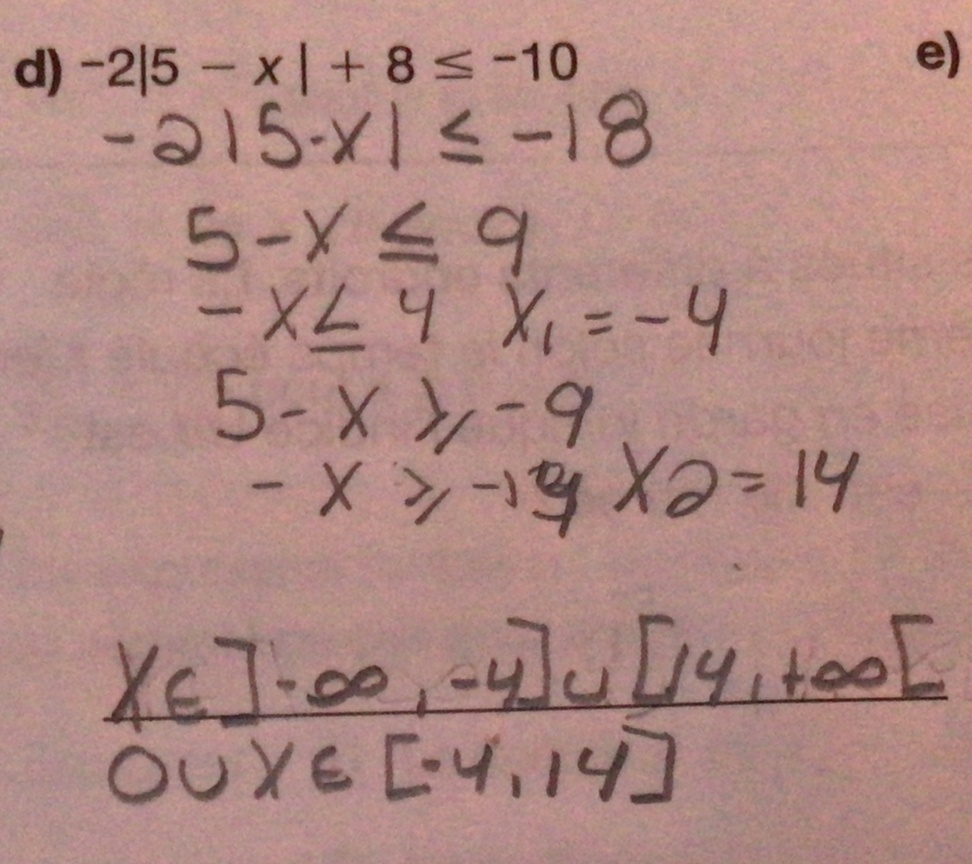 d) -2|5 - x| + 8 ≤ -10
e)
-2|5-x| ≤ -18
5-x ≤ 9
-x ≤ 4 x₁ = -4
5-x ≥ -9
-x ≥ -14 x2 = 14
x ∈ ]-∞, -4] ∪ [14, +∞[
OU x ∈ [-4, 14]